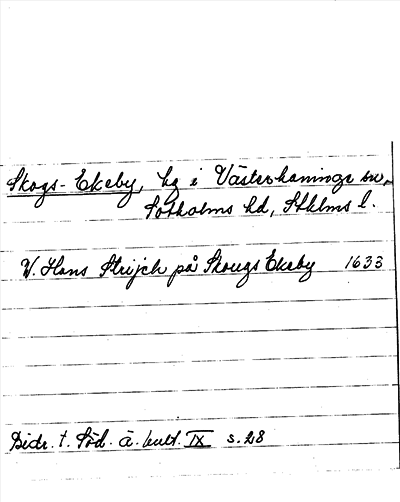 Skogs-Ekeby, hg i Västerhaninge sn,
Sotholms hd, Sthlms l.
V. Hans Strijch på Skougs Ekeby 1633
Bidr. t. Söd. ä. kult. IX s. 28